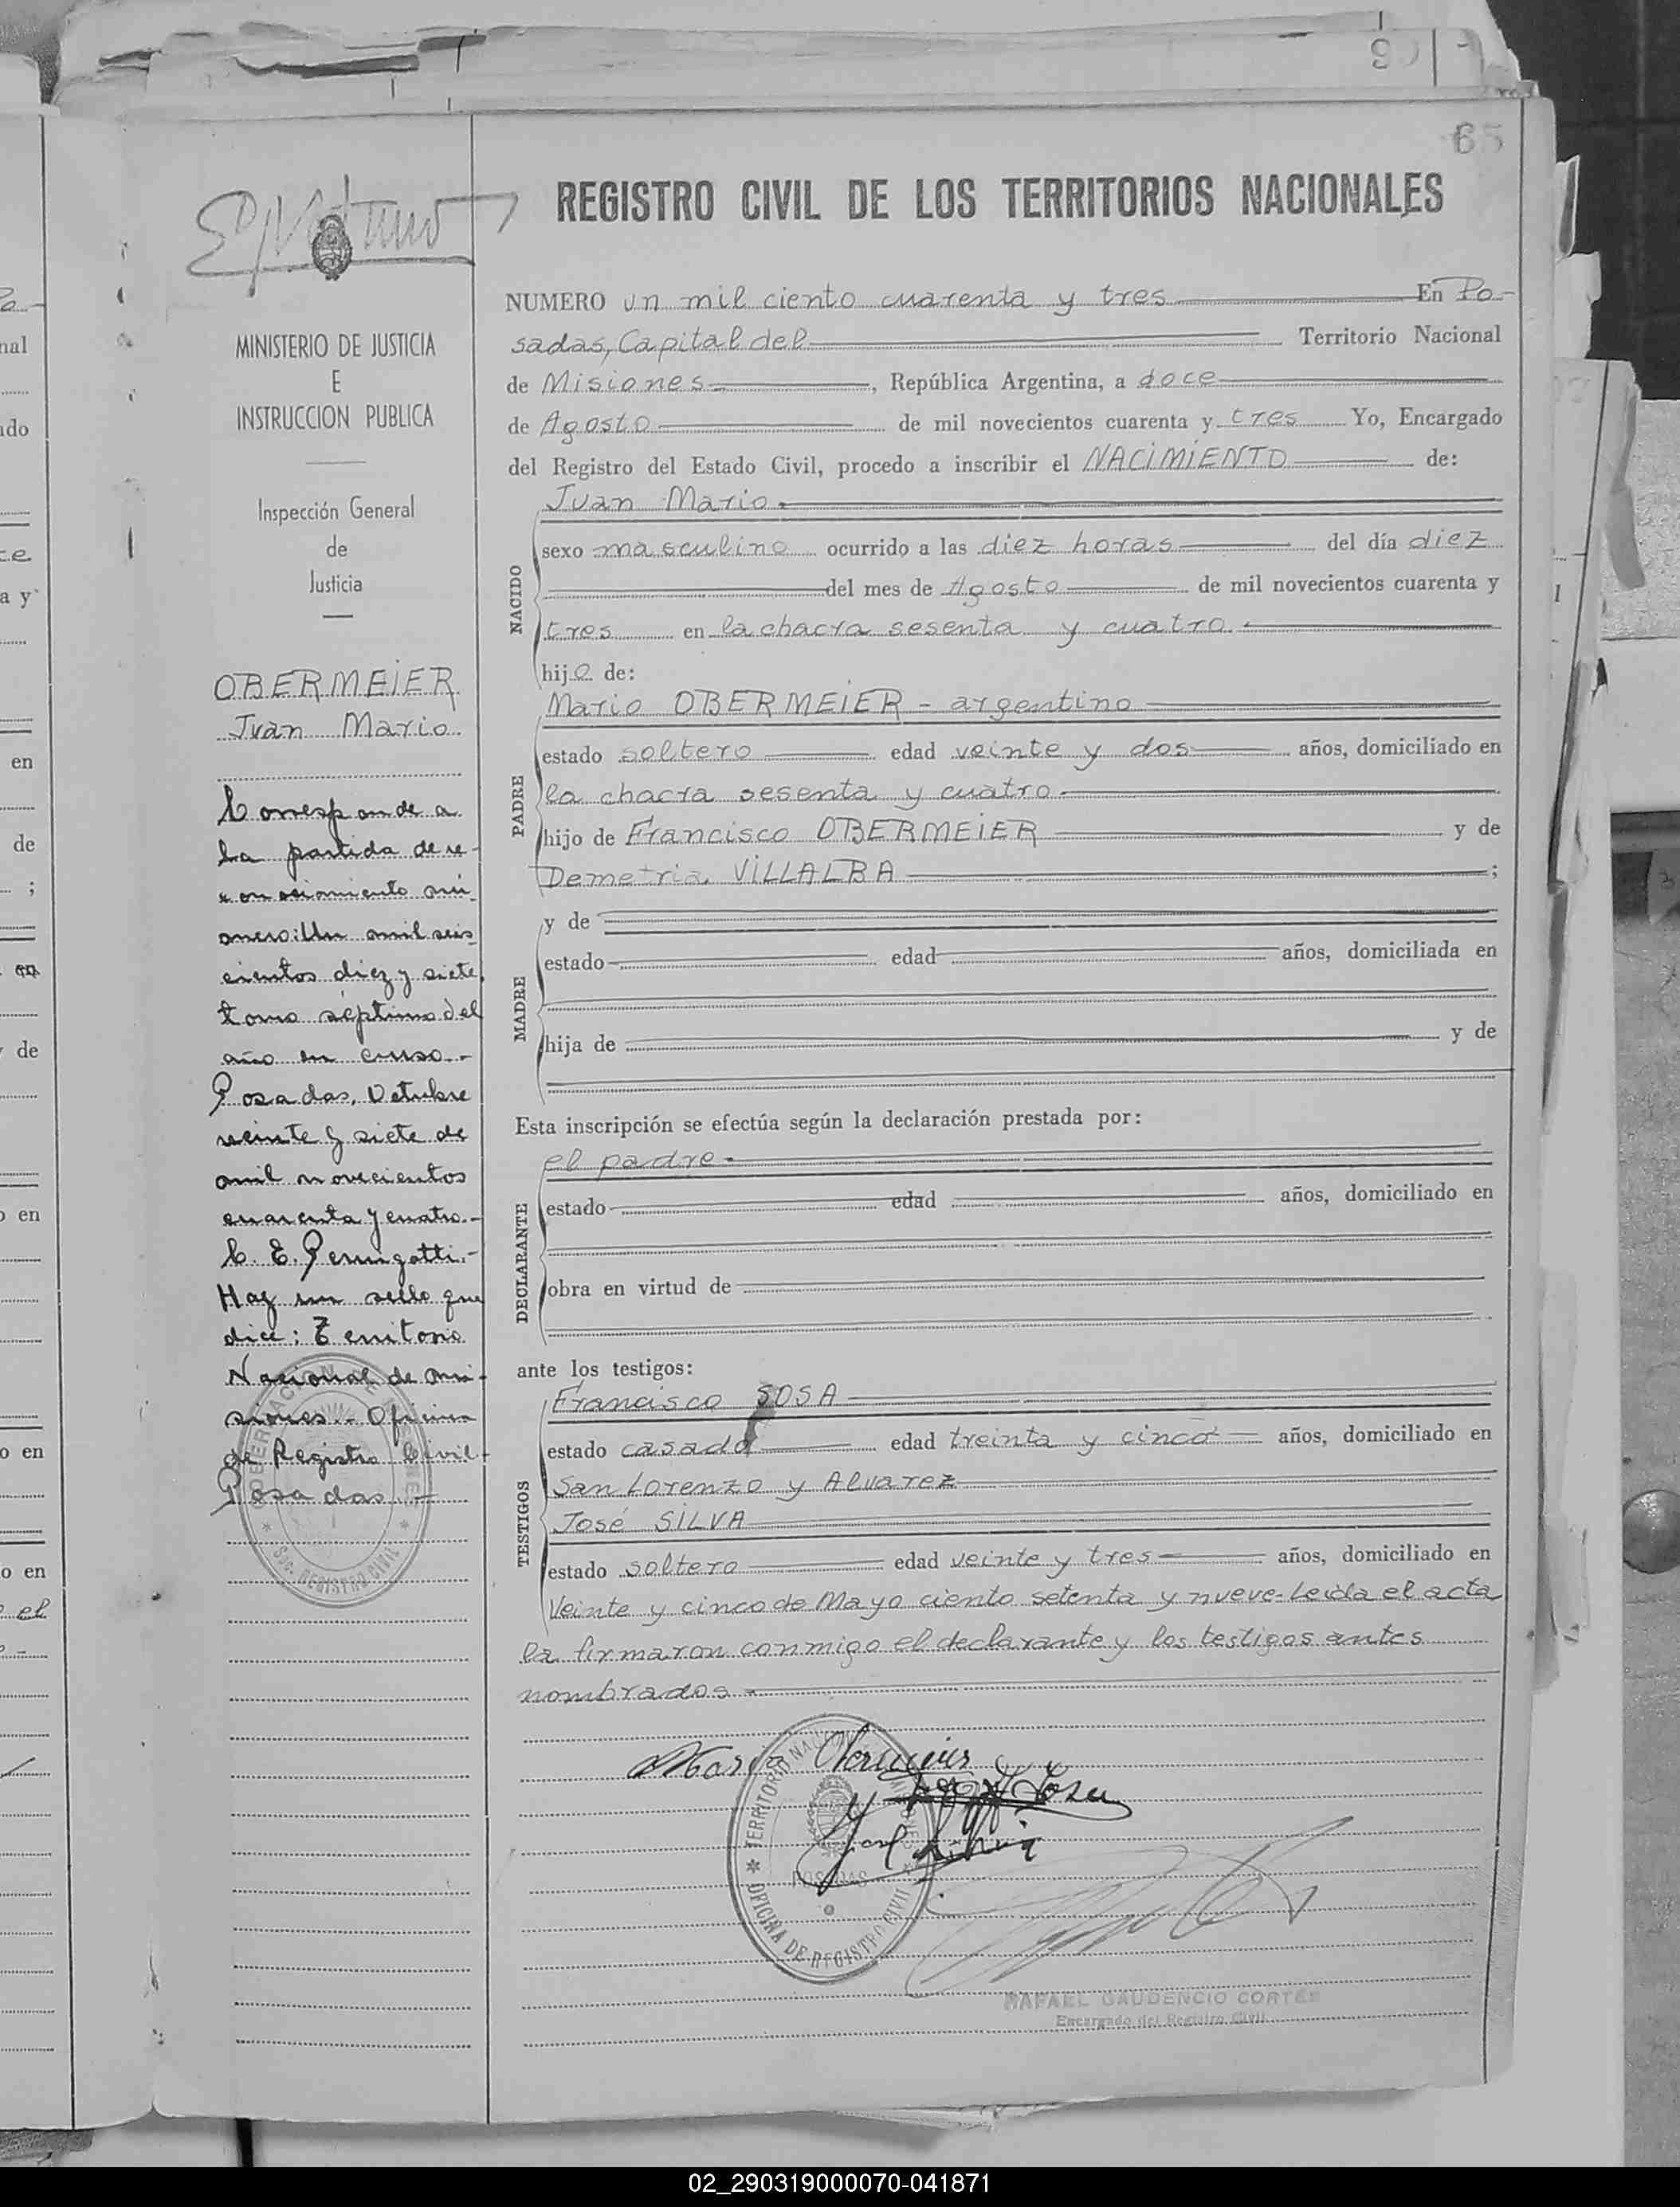 65
REGISTRO CIVIL DE LOS TERRITORIOS NACIONALES
NUMERO un mil ciento cuarenta y tres En Po-
sadas, Capital del Territorio Nacional
de Misiones, República Argentina, a doce
de Agosto de mil novecientos cuarenta y tres Yo, Encargado
del Registro del Estado Civil, procedo a inscribir el NACIMIENTO de:
NACIDO
Juan Mario.
sexo masculino ocurrido a las diez horas del día diez
del mes de Agosto de mil novecientos cuarenta y
tres en la chacra sesenta y cuatro.
hijo de:
PADRE
Mario OBERMEIER - argentino
estado soltero edad veinte y dos años, domiciliado en
la chacra sesenta y cuatro.
hijo de Francisco OBERMEIER y de
Demetria VILLALBA ;
MADRE
y de
estado edad años, domiciliada en
hija de y de
Esta inscripción se efectúa según la declaración prestada por:
DECLARANTE
el padre.
estado edad años, domiciliado en
obra en virtud de
ante los testigos:
TESTIGOS
Francisco SOSA
estado casado edad treinta y cinco años, domiciliado en
San Lorenzo y Alvarez
José SILVA
estado soltero edad veinte y tres años, domiciliado en
Veinte y cinco de Mayo ciento setenta y nueve- Leída el acta
la firmaron conmigo el declarante y los testigos antes
nombrados.
Mario Obermeier
Sosa
José Silva
TERRITORIO NACIONAL DE MISIONES
POSADAS
OFICINA DE REGISTRO CIVIL
RAFAEL GAUDENCIO CORTÉS
Encargado del Registro Civil
MINISTERIO DE JUSTICIA
E
INSTRUCCION PUBLICA
Inspección General
de
Justicia
OBERMEIER
Juan Mario
Corresponde a
la partida de re-
conocimiento nú-
mero: Un mil seis
cientos diez y siete
tomo séptimo del
año en curso.-
Posadas, Octubre
veinte y siete de
mil novecientos
cuarenta y cuatro.-
C. E. Pernigotti.-
Hay un sello que
dice: Territorio
Nacional de Mi-
siones - Oficina
de Registro Civil-
Posadas -
REGISTRO CIVIL
02_290319000070-041871